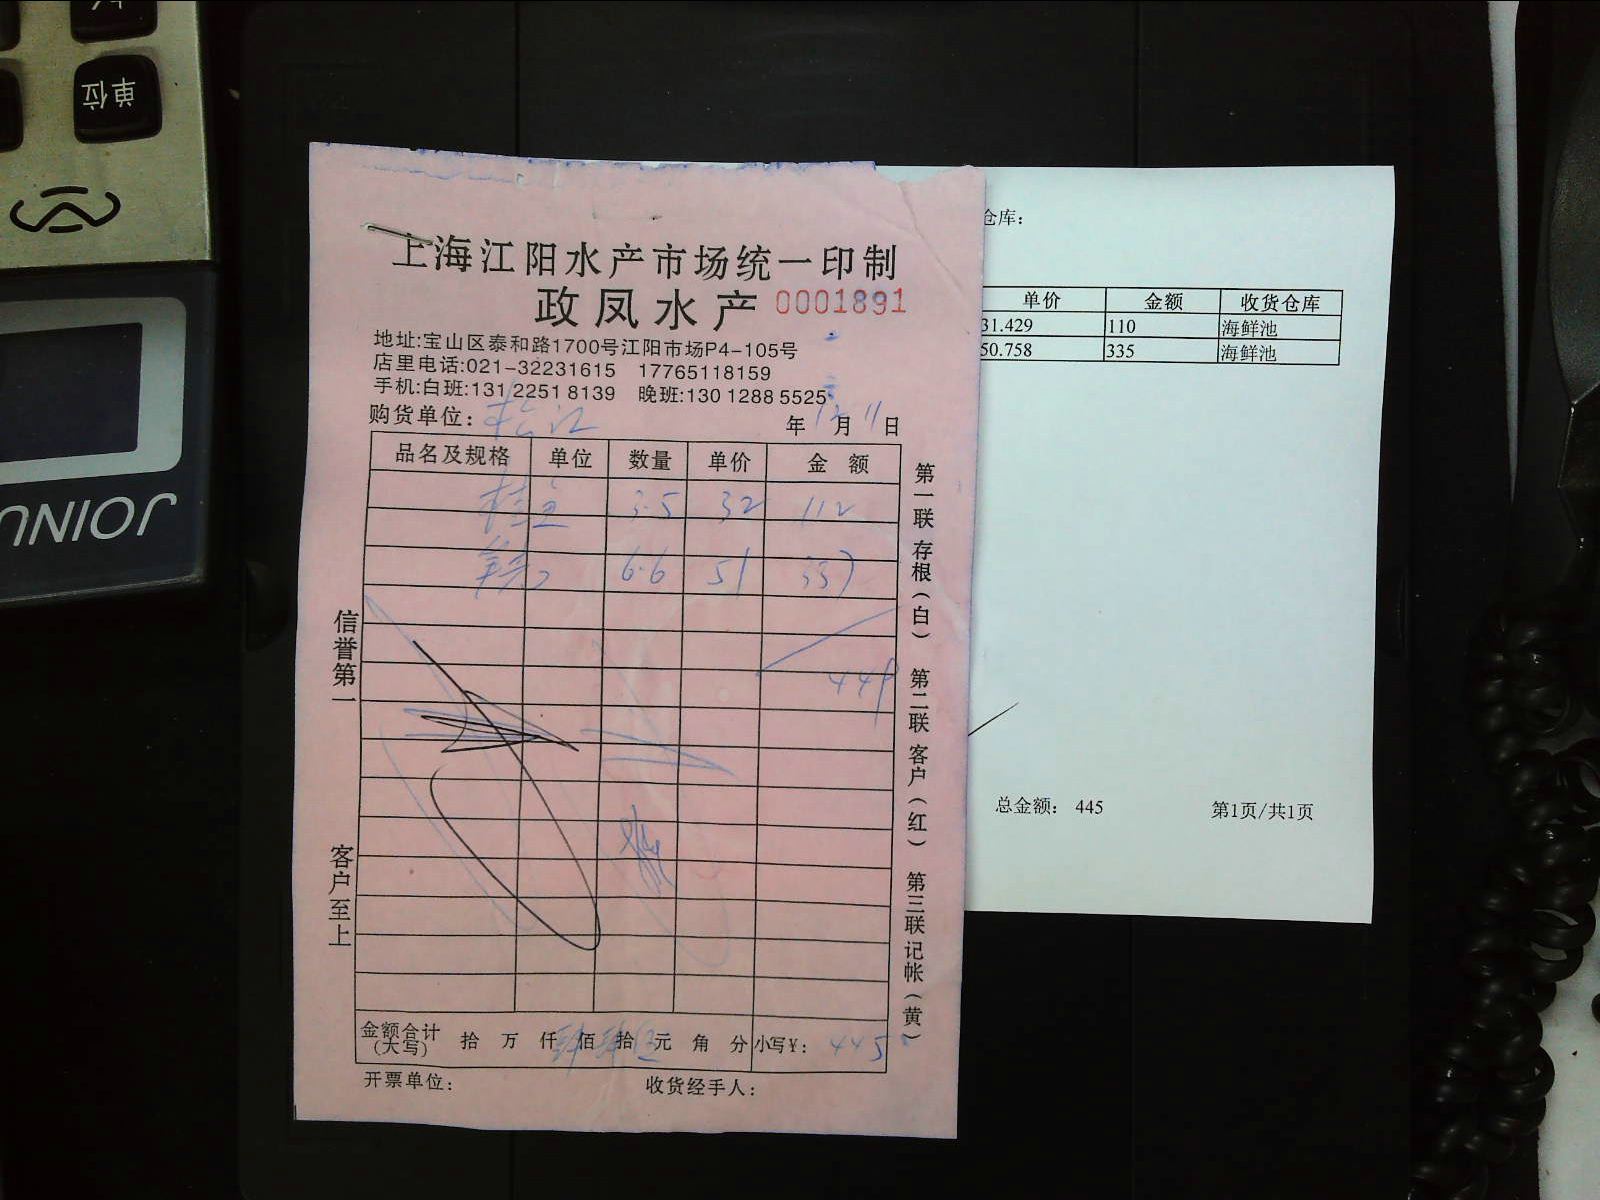 单位
JOINU
上海江阳水产市场统一印制
政凤水产 0001891
地址:宝山区泰和路1700号江阳市场P4-105号
店里电话:021-32231615 17765118159
手机:白班:131 2251 8139 晚班:130 1288 5525
购货单位: 松江 年 12 月 11 日
品名及规格 单位 数量 单价 金 额
桂鱼 3.5 32 112
6.6 51 337
449
信誉第一
客户至上
第一联存根(白) 第二联客户(红) 第三联记帐(黄)
金额合计(大写) 拾 万 仟 肆 佰 肆 拾 伍 元 角 分 小写¥: 445
开票单位: 收货经手人:
仓库:
单价 金额 收货仓库
31.429 110 海鲜池
50.758 335 海鲜池
总金额: 445 第1页/共1页